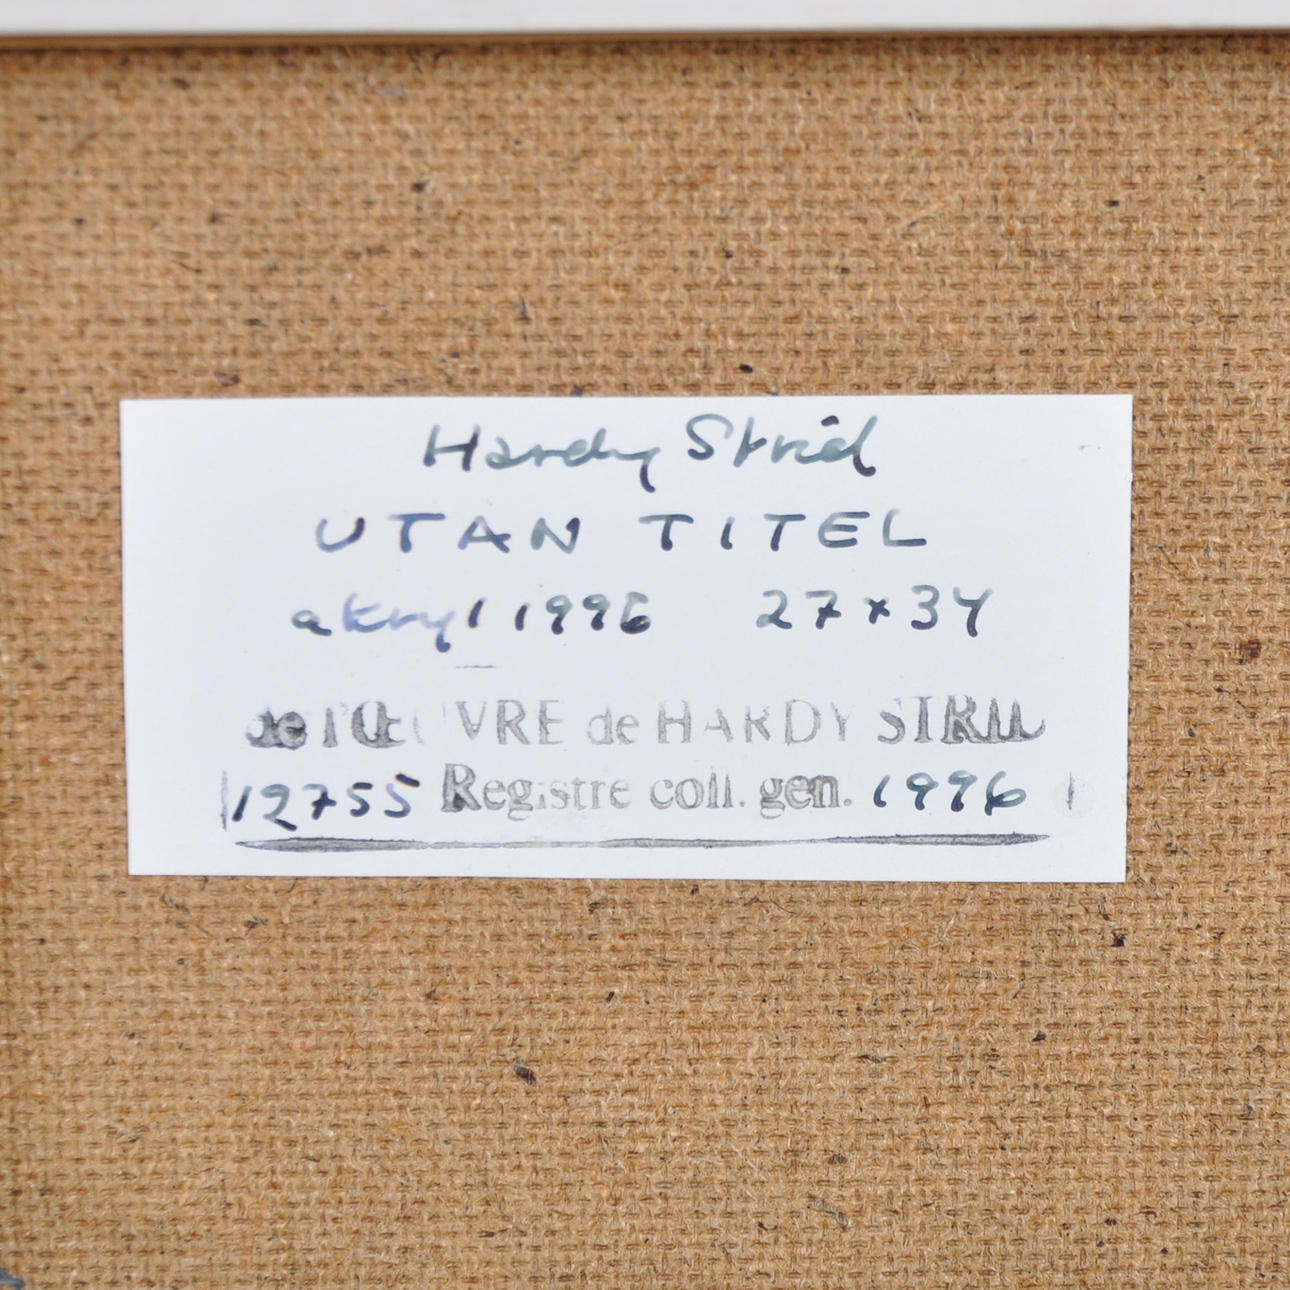 Hardy Strid
UTAN TITEL
akryl 1996 27×34
de l'ŒUVRE de HARDY STRID
12755 Registre coll. gen. 1996